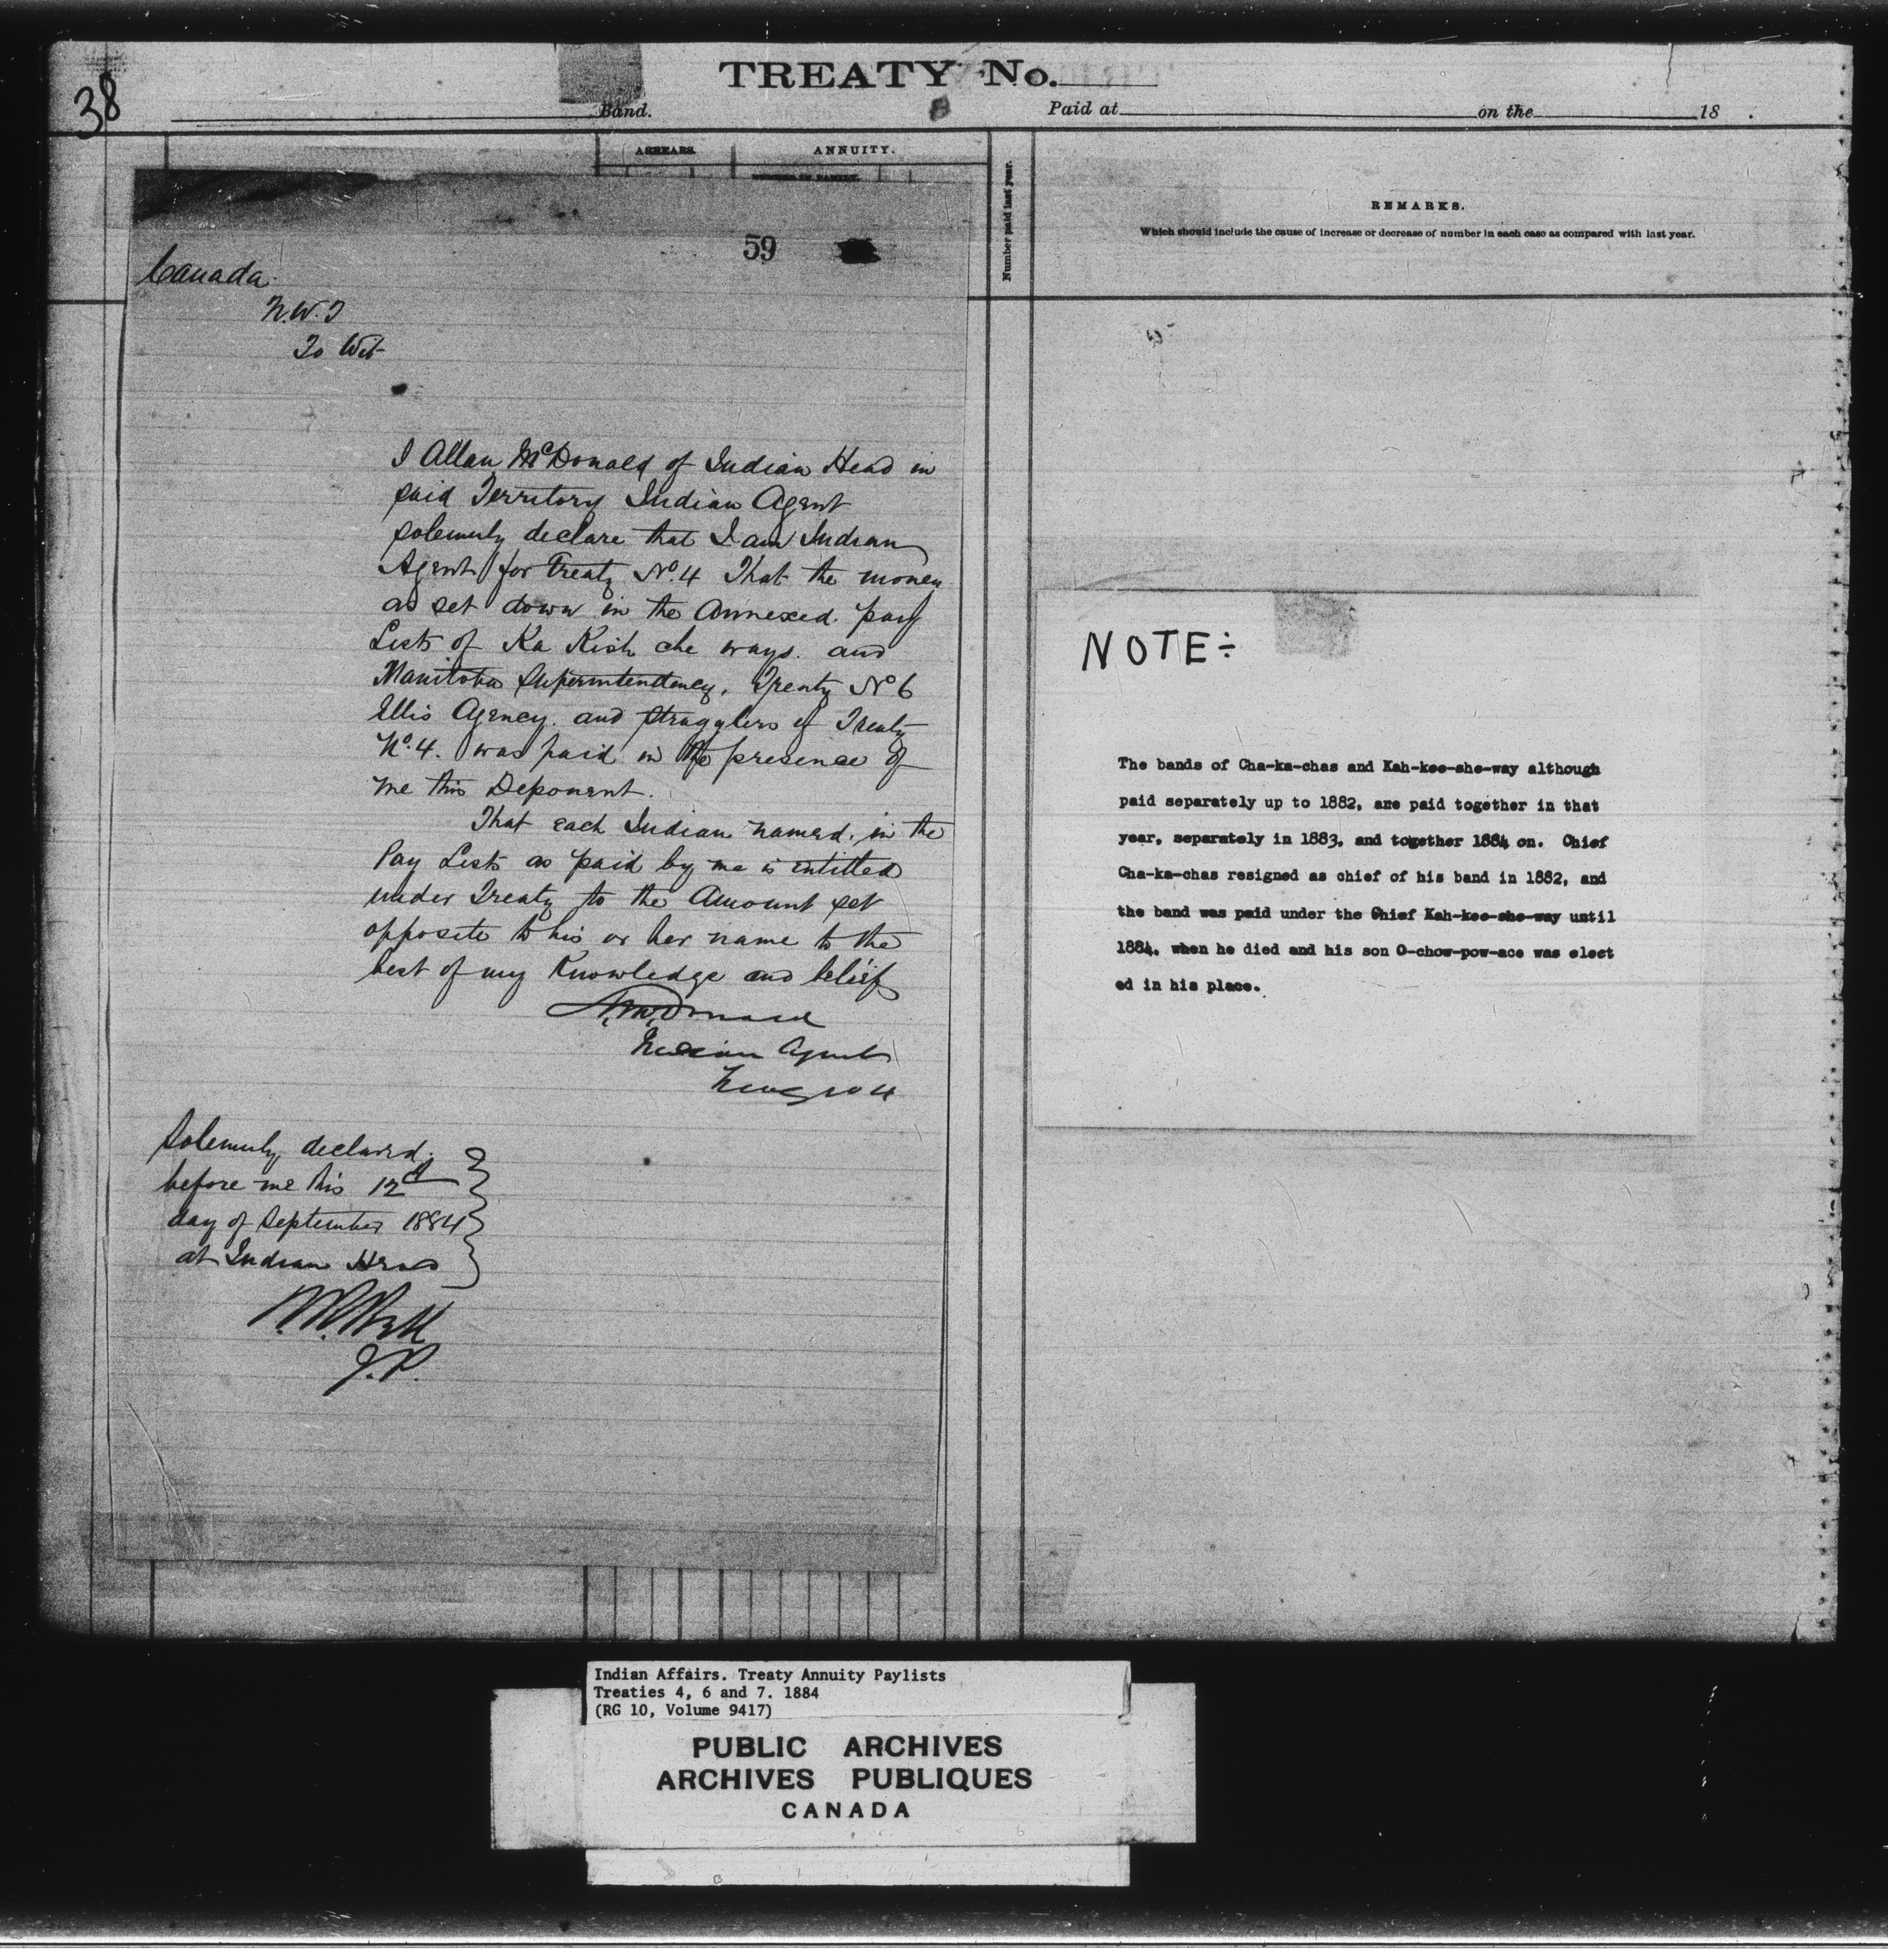 38
TREATY No.
Band.
Paid at on the 18
ARREARS.
ANNUITY.
NUMBER IN FAMILY.
Number paid last year.
REMARKS.
Which should include the cause of increase or decrease of number in each case as compared with last year.
59
Canada
N.W.T
To Wit
I Allan McDonald of Indian Head in
said Territory Indian Agent
solemnly declare that I am Indian
Agent for Treaty No. 4 That the money
as set down in the Annexed pay
Lists of Ka Kish che ways. and
Manitoba Superintendency, Treaty No 6
Ellis Agency. and stragglers of Treaty
No. 4. was paid in the presence of
me this Deponent.
That each Indian named in the
Pay Lists as paid by me is entitled
under Treaty to the Amount set
opposite to his or her name to the
best of my Knowledge and belief
A. McDonald
Indian Agent
Solemnly declared
before me this 12
day of September 1884
at Indian Head
J.P.
NOTE÷
The bands of Cha-ka-chas and Kah-kee-she-way although
paid separately up to 1882, are paid together in that
year, separately in 1883, and together 1884 on. Chief
Cha-ka-chas resigned as chief of his band in 1882, and
the band was paid under the Chief Kah-kee-she-way until
1884, when he died and his son O-chow-pow-ace was elect
ed in his place.
Indian Affairs. Treaty Annuity Paylists
Treaties 4, 6 and 7. 1884
(RG 10, Volume 9417)
PUBLIC ARCHIVES
ARCHIVES PUBLIQUES
CANADA